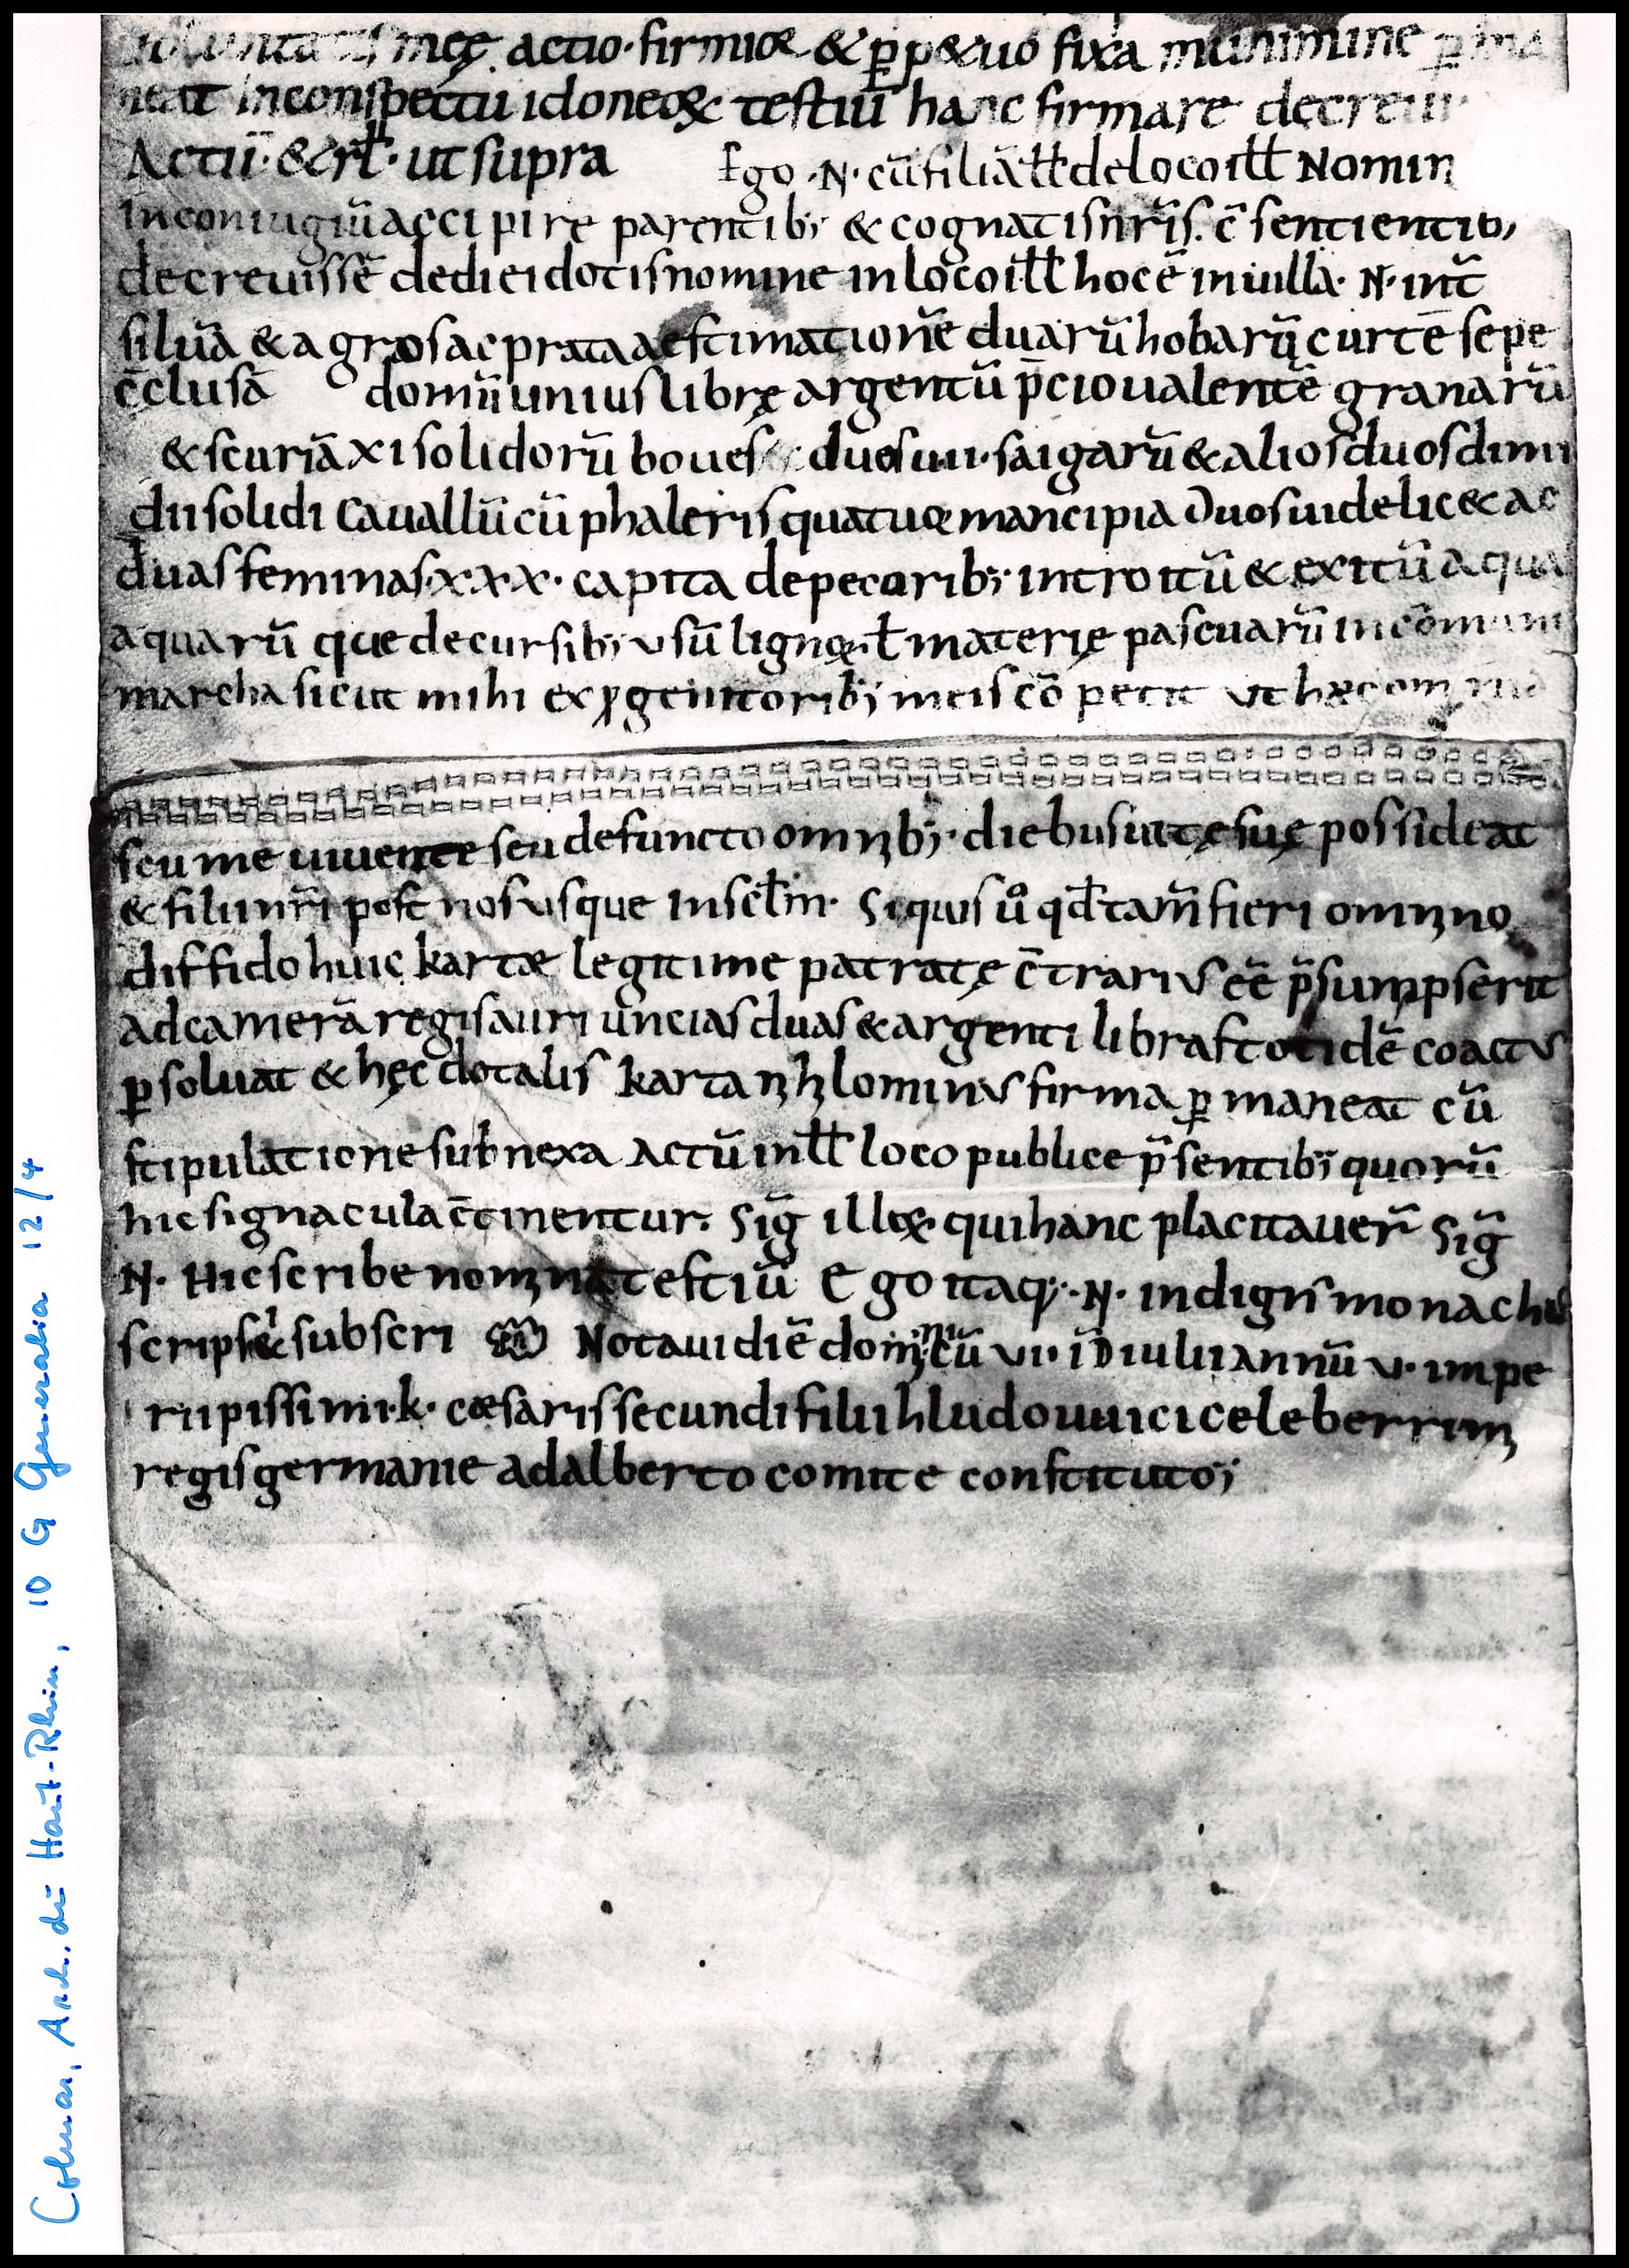 uoluntatis meę actio · firmior & p̱p&uo fixa munimine p̱ma
neat In conspectu idoneoꝝ testiū hanc firmare decreui
Actū · & rł · ut supra Ego · N · cū filiā iłł de loco iłł Nomin
in coniugiū accipire parentib; & cognatis nr̄is · c̄sentientib;
decreuissē dedi ei dotis nomine in loco iłł hoc ē in uilla · N · int̄
siluā & agros ac prata aestimationē duarū hobarū curtē sepe
c̄clusā domū unius librę argentū p̄cio ualentē granarū
& scuriā xi solidorū boues duos uııı · saigarū & alios duos dimi
dii solidi Cauallū cū phaleris quatuor mancipia Duos uidelic& ac
duas feminas · xxx · capita de pecoribꝫ introitū & exitū aqua
aquarū que decursibꝫ usū lignoꝝ ł materię pascuarū in cōmuni
marcha sicut mihi ex ꝓgenitoribꝫ meis cōpetit ut hęc om
seu me uiuente seu defuncto omnibꝫ · diebus uitę suę possideat
& filii nr̄i post nos usque In scłm · Si quis ů qđ tam̄ fieri omnino
diffido huic kartæ legitime patratę c̄trarius eē p̄sumpserit
ad camerā regis auri uncias duas & argenti libras totidē coactus
p̱soluat & hęc dotalis karta nihilominus firma p̱maneat cū
stipulatione subnexa Actū in iłł loco publice p̄sentibꝫ quorū
hic signacula c̄tinentur · Sig̅ illoꝝ · qui hanc placitauer̄ Sig̅
N · Hic scribe nomina testiū Ego itaq; · N · indign̄s monachus
scripsi & subscri Notaui diē dominicū vi · iD iulii annū v · impe
rii piissimi · k · cæsaris secundi filii hludouuici celeberrimi
regis germanie adalberto comite constituto;
Colmar, Arch. du Haut-Rhin, 10 G Generalia 12/4